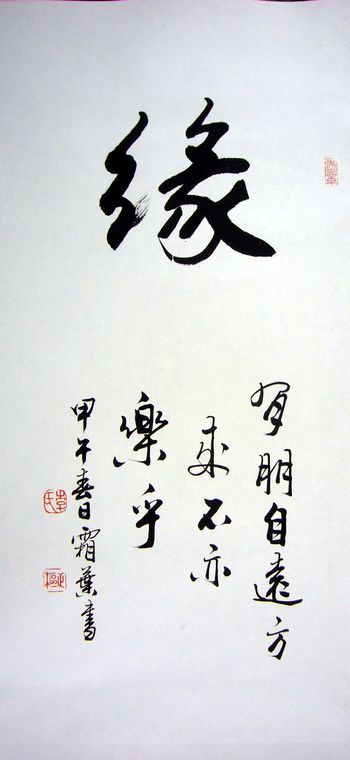 緣
有朋自遠方
來不亦
樂乎
甲午春日霜葉書
李氏